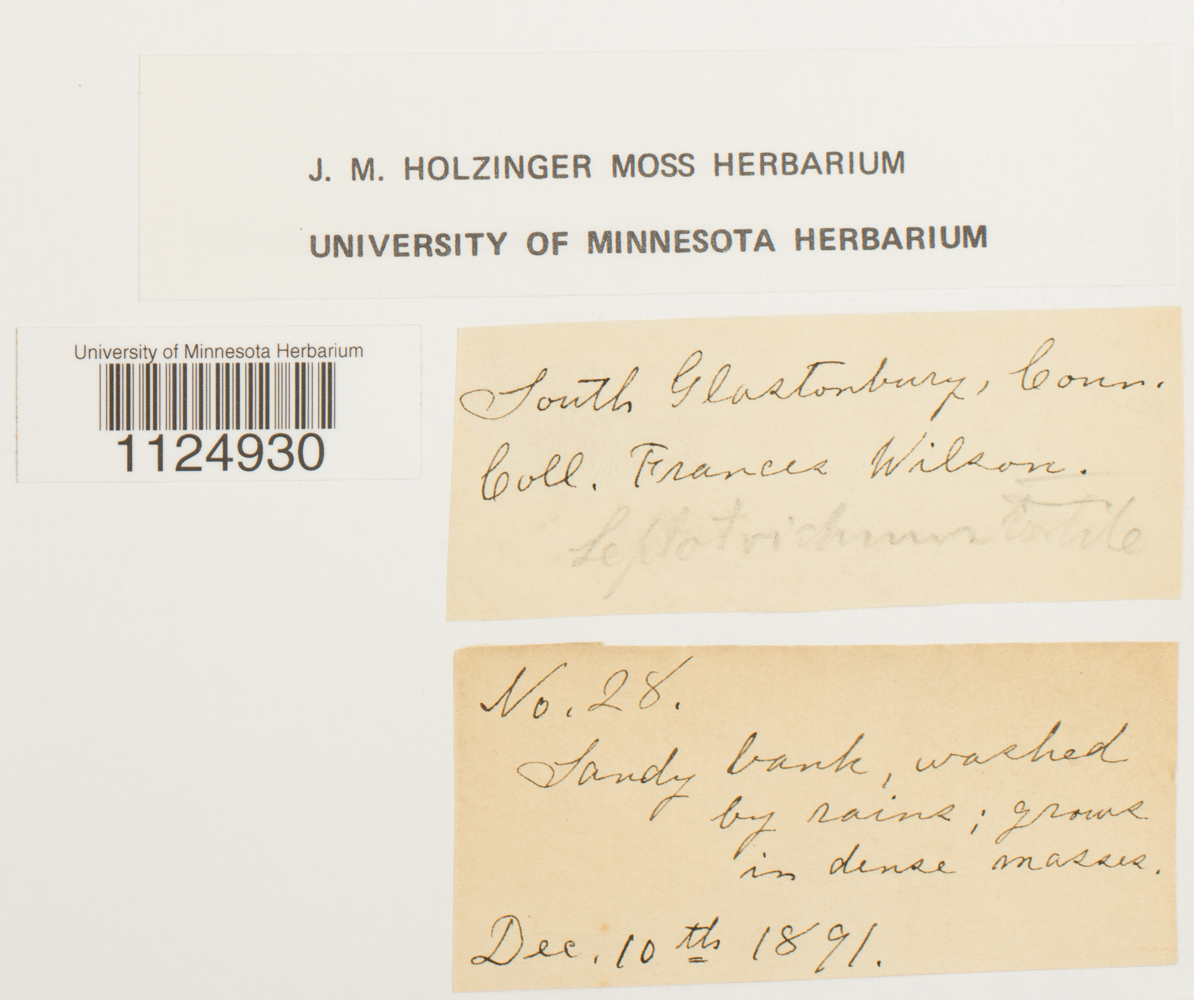 J. M. HOLZINGER MOSS HERBARIUM
UNIVERSITY OF MINNESOTA HERBARIUM
University of Minnesota Herbarium
1124930
South Glastonbury, Conn.
Coll. Frances Wilson.
Leptotrichum tortile
No. 28.
Sandy bank, washed
by rains; grows
in dense masses.
Dec. 10th 1891.